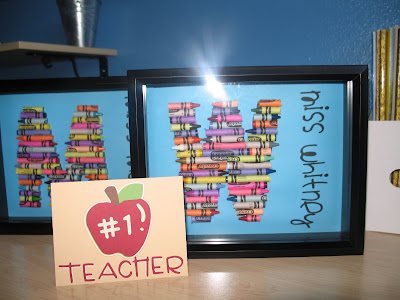 miss whitney
#1!
TEACHER